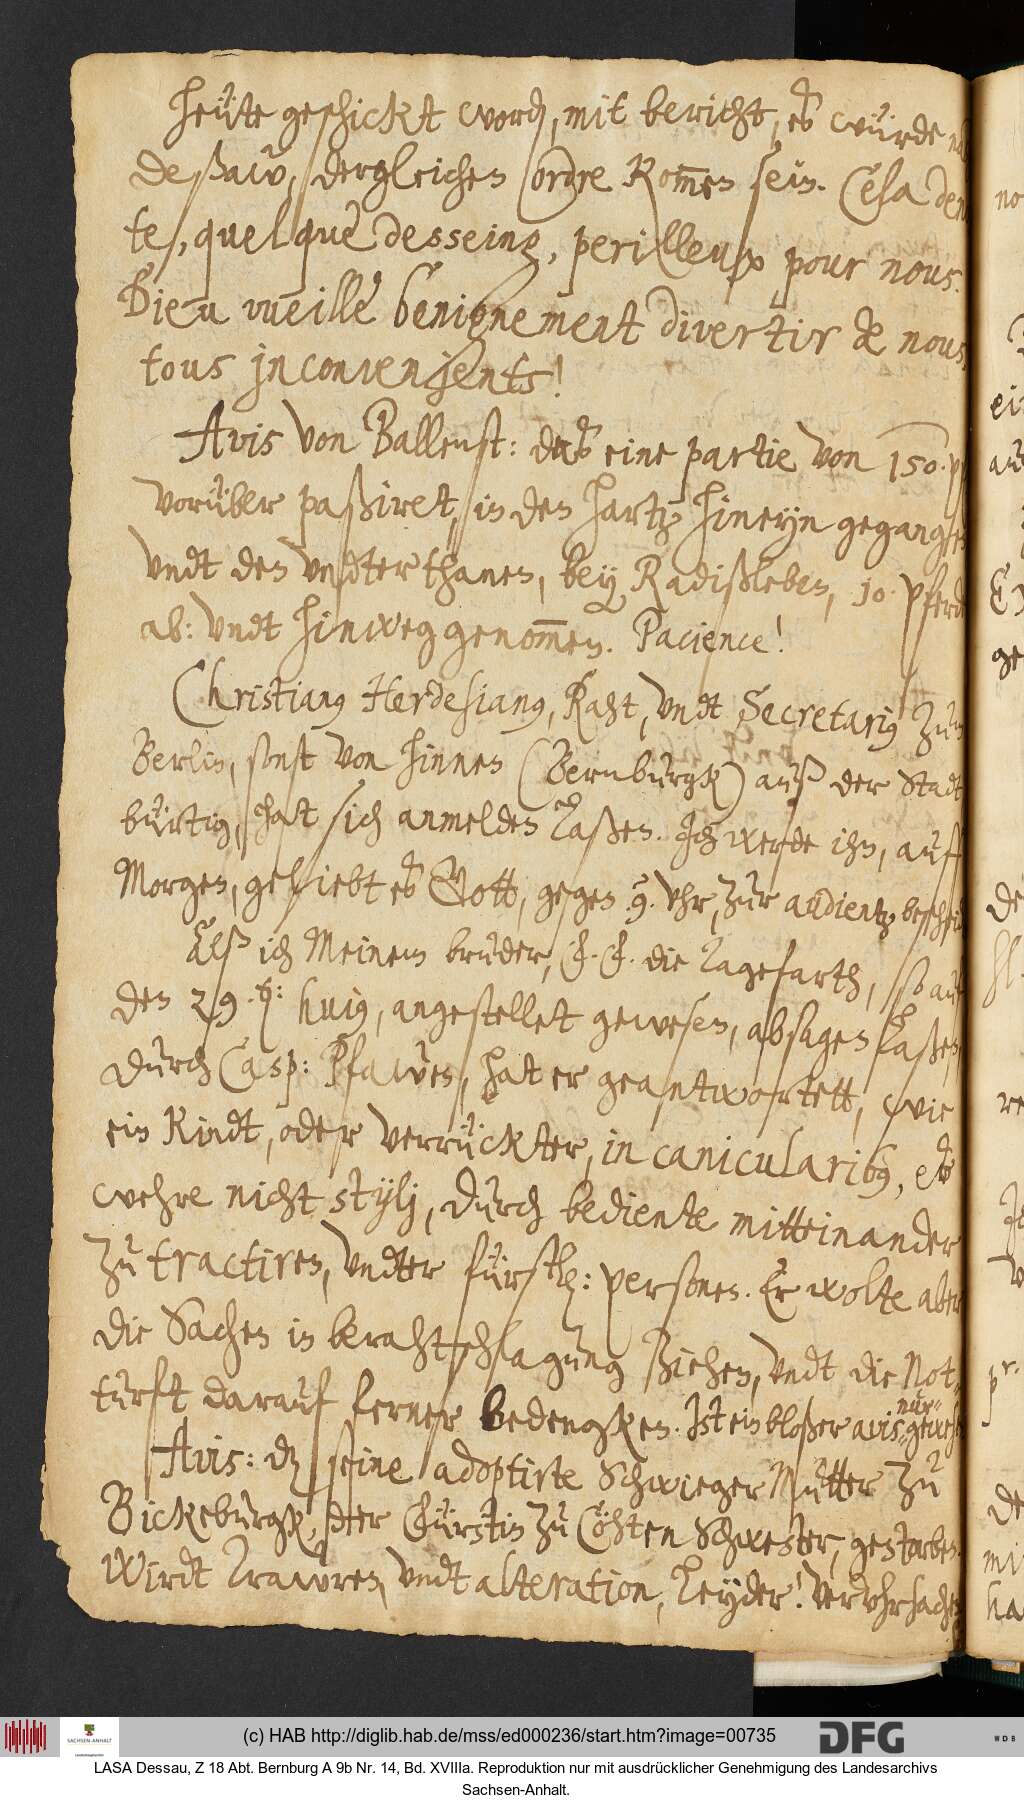 heütte geschickt word, mit bericht, es würde na
Deßaw, dergleichen ordre kommen sein. Cela den
te, quelque desseing, perilleux pour nous.
Dieu vueille benignement divertir de nous
tous jnconvenjents!
Avis von Ballenst: daß eine partie von 150. p
vorüber paßiret, in den Hartz hineyn gegangen
vndt den vndterthanen, bey Radißleben, 10. pferde
ab: vndt hinweg genommen. Pacience!
Christianus Herdesianus, Raht, vndt Secretarius zu
Berlin, sonst von hinnen (Bernburgk) auß der Stadt
bürtig, hat sich anmelden laßen. Jch werde ihn, auf
Morgen, geliebt es Gott, gegen .9. vhr, zur audientz bescheid
Alß ich Meinem bruder, F. F. die Tagefarth, so auf
den 29. huius, angestellet gewesen, absagen laßen,
durch Casp: Pfawen, hat er geantwortett, wie
ein Kindt, oder verrückter, in canicularibus, es
wehre nicht stylj, durch bediente mitteinander
zu tractiren, vndter fürstl: personen. Er wolte aber
die Sachen in berahtschlagung ziehen, vndt die Not¬
turft darauf ferner bedengken. Jst ein bloßer avis nur gewese
Avis: daß seine adoptirte Schwieger Mutter zu
Bickeburgk, der Fürstin zu Cöhten Schwester, gestorben.
Wirdt Trawren, vndt alteration, leyder! vervhrsachen
no
ei
au
ge
de
re
de
mi
ha
(c) HAB http://diglib.hab.de/mss/ed000236/start.htm?image=00735
SACHSEN-ANHALT
DFG
WDB
LASA Dessau, Z 18 Abt. Bernburg A 9b Nr. 14, Bd. XVIIIa. Reproduktion nur mit ausdrücklicher Genehmigung des Landesarchivs
Sachsen-Anhalt.